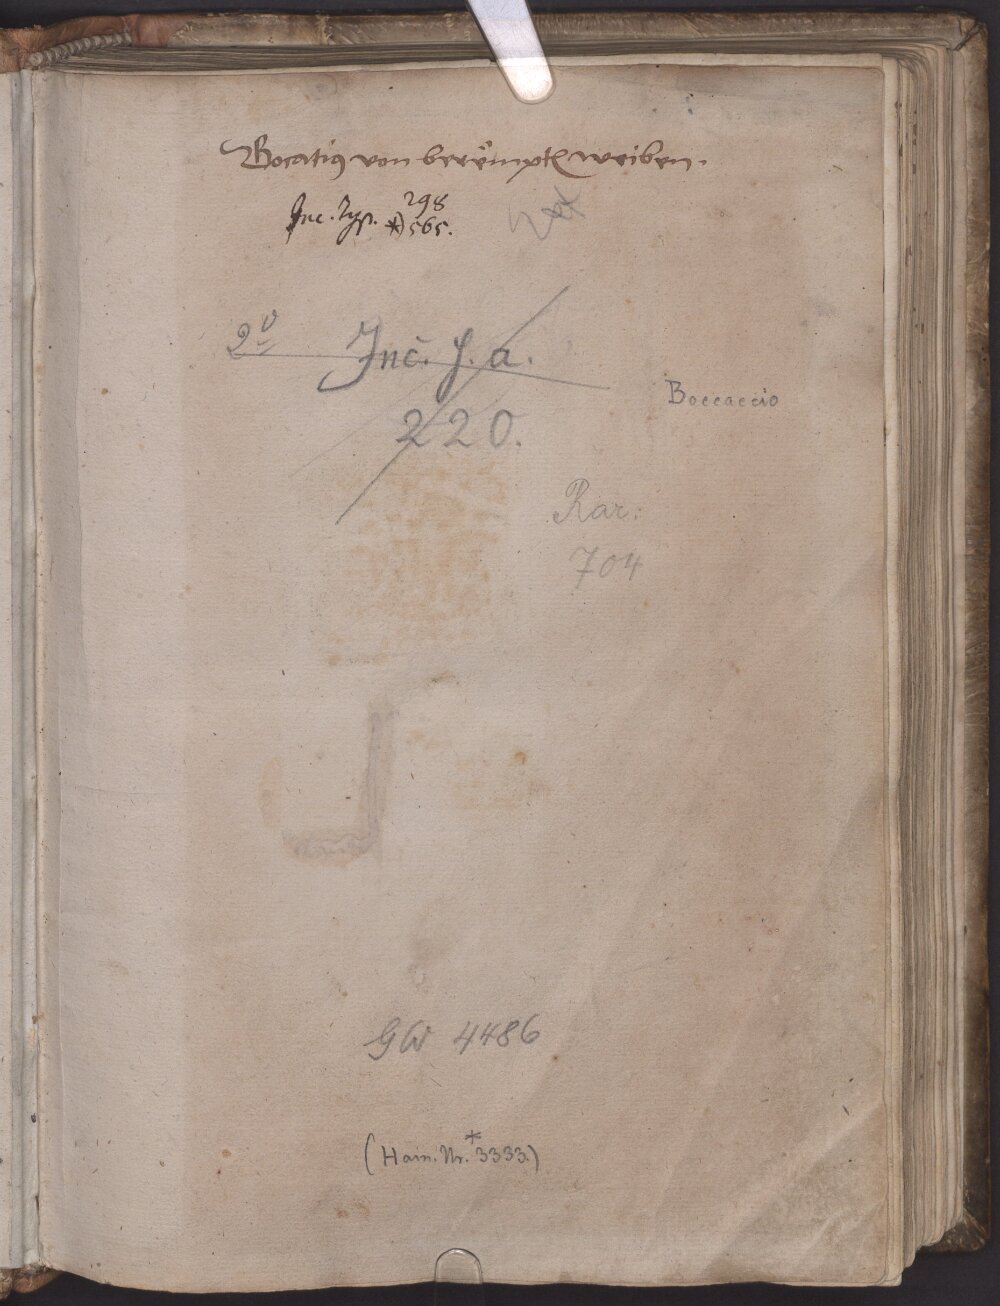 Bocatiꝰ von berümptē weiben.
Inc. Typ. 298
*) 565.
2º Inc. s. a.
220.
Boccaccio
Rar.
704
GW 4486
(Hain. Nr. *3333.)